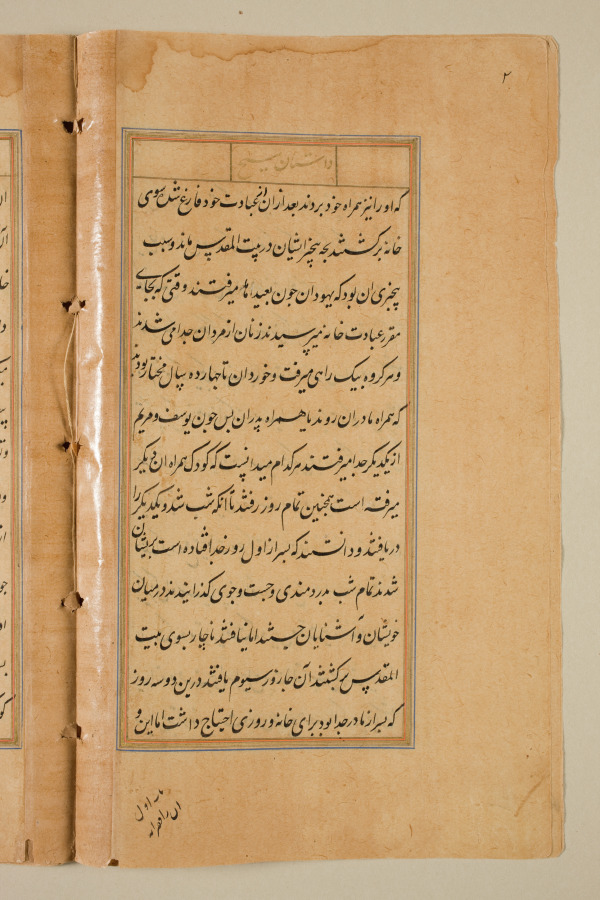 ۲
داستان مسیح
که اورا نیز همراه خود بردند بعد ازان از عبادت خود فارغ شده سوی
خانه برگشتند بچه بیخبر ایشان در بیت المقدس ماند و سبب
بیخبری ان بود که یهودان چون بعید اهله میرفتند وقتی که بجای
مقرر عبادت خانه میرسیدند زنان از مردان جدا می شدند
و هر گروه بیک راهی میرفت و خوردان تا چهارده سال مختار بودند
که همراه مادران روند یا همراه پدران بس چون یوسف و مریم
از یکدیکر جدا میرفتند هر کدام میدانست که کودک همراه ان دیکر
میرفته است همچنین تمام روز رفتند تا انکه شب شد و یکدیکر را
دریافتند و دانستند که بسر از اول روز جدا افتاده است بریشان
شدند تمام شب بدردمندی و جست و جوی کذرانیدند در میان
خویشان و آشنایان جستند اما نیافتند ناچار بسوی بیت
المقدس برکشتند آن جا روز سیوم یافتند درین دو سه روز
که بسر از مادر جدا بود برای خانه و روزی احتیاج داشت اما این و
اول